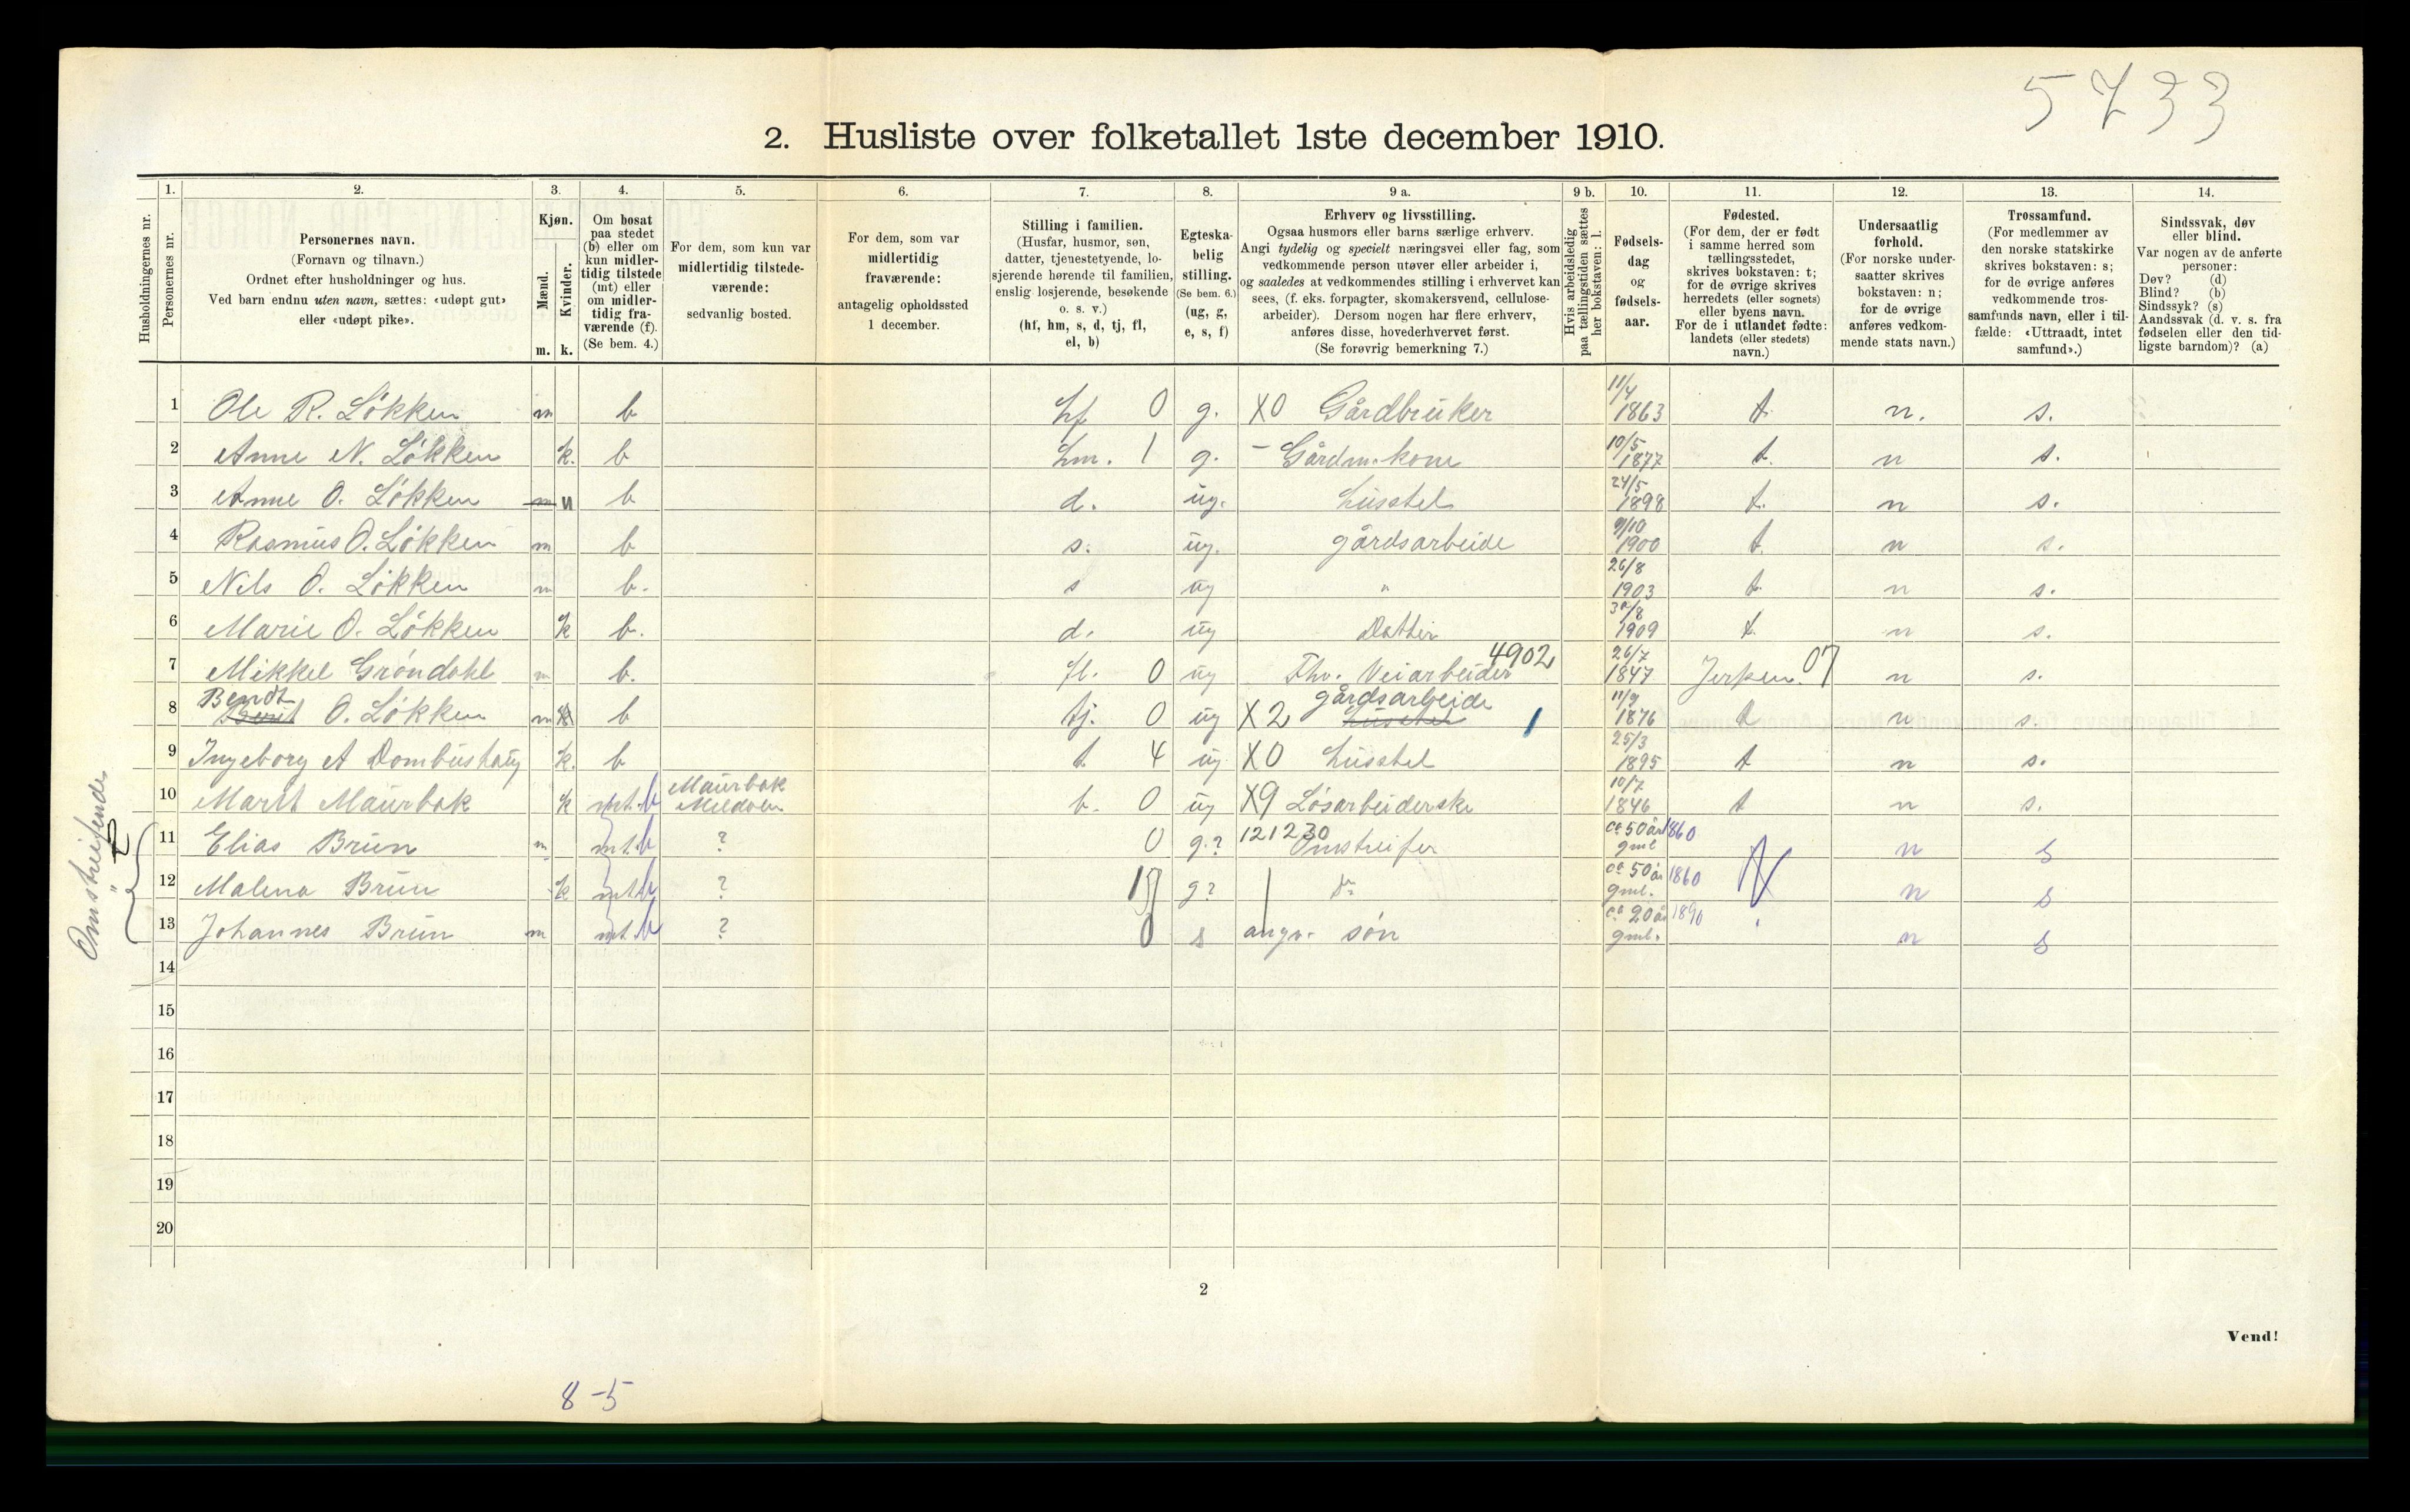 5733
2. Husliste over folketallet 1ste december 1910.
Husholdningernes nr.
1.
Personernes nr.
2.
Personernes navn.
(Fornavn og tilnavn.)
Ordnet efter husholdninger og hus.
Ved barn endnu uten navn, sættes: «udøpt gut»
eller «udøpt pike».
3.
Kjøn.
Mænd.
Kvinder.
m. k.
4.
Om bosat
paa stedet
(b) eller om
kun midler-
tidig tilstede
(mt) eller
om midler-
tidig fra-
værende (f).
(Se bem. 4.)
5.
For dem, som kun var
midlertidig tilstede-
værende:
sedvanlig bosted.
6.
For dem, som var
midlertidig
fraværende:
antagelig opholdssted
1 december.
7.
Stilling i familien.
(Husfar, husmor, søn,
datter, tjenestetyende, lo-
sjerende hørende til familien,
enslig losjerende, besøkende
o. s. v.)
(hf, hm, s, d, tj, fl,
el, b)
8.
Egteska-
belig
stilling.
(Se bem. 6.)
(ug, g,
e, s, f)
9 a.
Erhverv og livsstilling.
Ogsaa husmors eller barns særlige erhverv.
Angi tydelig og specielt næringsvei eller fag, som
vedkommende person utøver eller arbeider i,
og saaledes at vedkommendes stilling i erhvervet kan
sees, (f. eks. forpagter, skomakersvend, cellulose-
arbeider). Dersom nogen har flere erhverv,
anføres disse, hovederhvervet først.
(Se forøvrig bemerkning 7.)
9 b.
Hvis arbeidsledig
paa tællingstiden sættes
her bokstaven: l.
10.
Fødsels-
dag
og
fødsels-
aar.
11.
Fødested.
(For dem, der er født
i samme herred som
tællingsstedet,
skrives bokstaven: t;
for de øvrige skrives
herredets (eller sognets)
eller byens navn.
For de i utlandet fødte:
landets (eller stedets)
navn.)
12.
Undersaatlig
forhold.
(For norske under-
saatter skrives
bokstaven: n;
for de øvrige
anføres vedkom-
mende stats navn.)
13.
Trossamfund.
(For medlemmer av
den norske statskirke
skrives bokstaven: s;
for de øvrige anføres
vedkommende tros-
samfunds navn, eller i til-
fælde: «Uttraadt, intet
samfund».)
14.
Sindssvak, døv
eller blind.
Var nogen av de anførte
personer:
Døv? (d)
Blind? (b)
Sindssyk? (s)
Aandssvak (d. v. s. fra
fødselen eller den tid-
ligste barndom)? (a)
1 Ole R. Løkken m b hf 0 g. X0 Gårdbruker 11/4 1863 t. n. s.
2 Anne N. Løkken k. b hm. 1 g. - Gårdm.kone 10/5 1877 t. n s.
3 Anne O. Løkken m b d. ug. husstel 24/5 1898 t. n s.
4 Rasmus O. Løkken m b s. ug. gårdsarbeide 9/10 1900 t. n s.
5 Nils O. Løkken m b. s ug " 26/8 1903 t. n s.
6 Marie O. Løkken k b. d. ug Datter 30/8 1909 t. n s.
7 Mikkel Grøndahl m b. fl. 0 ug Fhv. Veiarbeider 4902 26/7 1847 Jerpen. 07 n s.
8 Bendt O. Løkken m b tj. 0 ug X2 gårdsarbeide husstel 1 11/9 1876 t n s.
9 Ingeborg A Dombushaug k. b t. 4 ug X0 husstel 25/3 1895 t n s.
10 Marit Maurbak k mt. b Maurbak b. 0 ug X9 Løsarbeiderske 10/7 1846 t n s.
Omstreifende
11 Elias Brun m mt. b ? 0 g.? 121230 Omstreifer ca 50 år gml 1860 n s
12 Malena Brun k mt b ? g? do ca 50 år gml. 1860 n s
13 Johannes Brun m mt. b ? s angv. søn ca 20 år gml. 1890 n s
14
15
16
17
18
19
20
2
Vend!
8-5